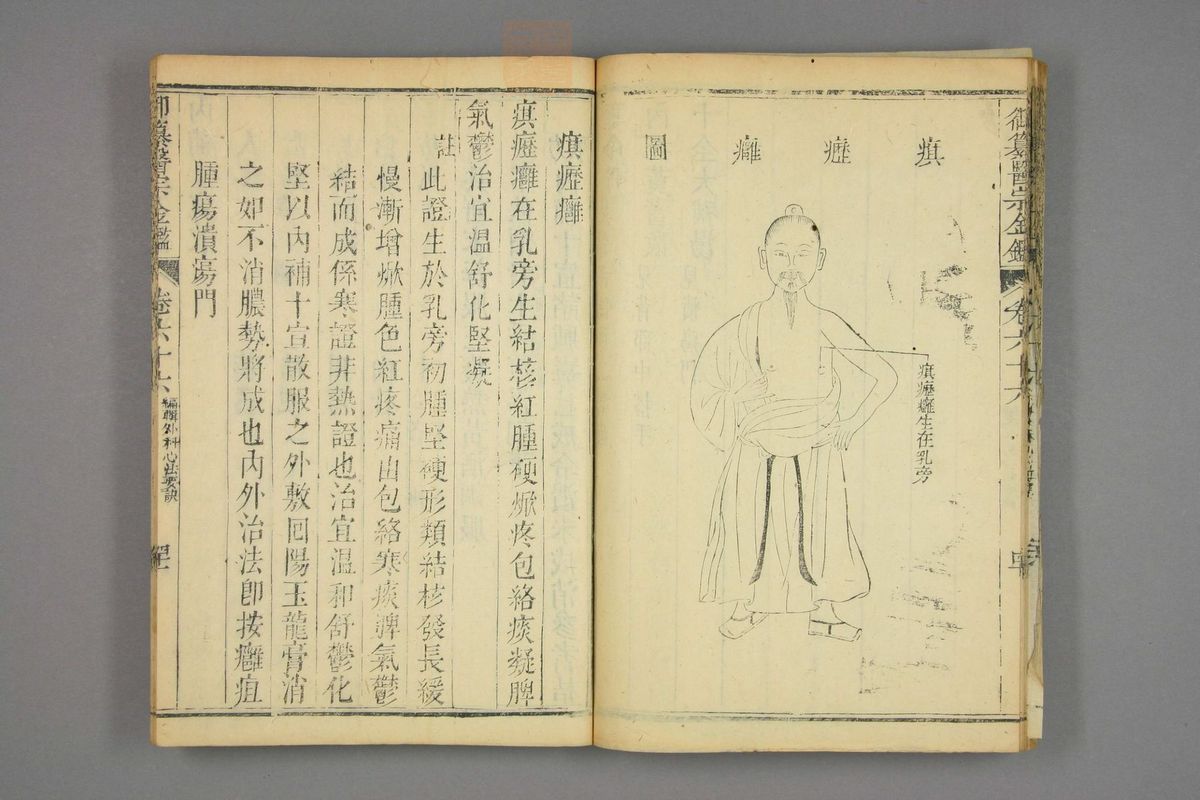 御纂醫宗金鑑
卷六十六
㾺瀝癰圖
㾺瀝癰生在乳旁
㾺瀝癰
㾺瀝癰在乳旁生結核紅腫硬焮疼包絡痰凝脾
氣鬱治宜溫舒化堅凝
註此證生於乳旁初腫堅硬形類結核發長緩
慢漸增焮腫色紅疼痛由包絡寒痰脾氣鬱
結而成係寒證非熱證也治宜溫和舒鬱化
堅以內補十宣散服之外敷回陽玉龍膏消
之如不消膿勢將成也內外治法卽按癰疽
腫瘍潰瘍門
御纂醫宗金鑑
卷六十六
編輯外科心法要訣